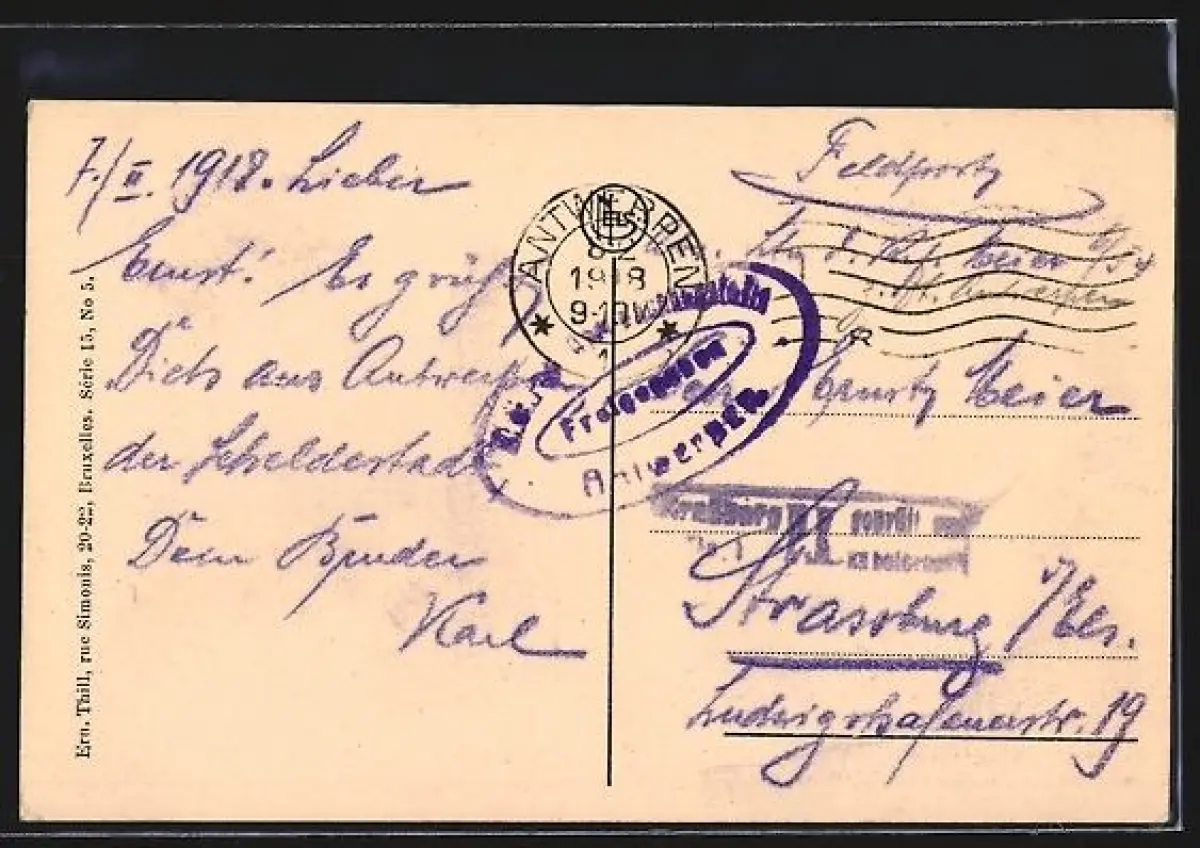 7./II. 1918. Lieber
Ernst! Es grüßt
Dich aus Antwerpen
der Scheldestadt
Dein Bruder
Karl
Ern. Thill, rue Simonis, 20-22, Bruxelles. Série 15, No 5.
ANTWERPEN
1918
9-10
Freigegeben
Antwerpen
Feldpost
Meier
Antwerpen
Ernst Meier
geprüft
zu befördern
Strassburg i/Els.
Ludwigshafenerstr. 19